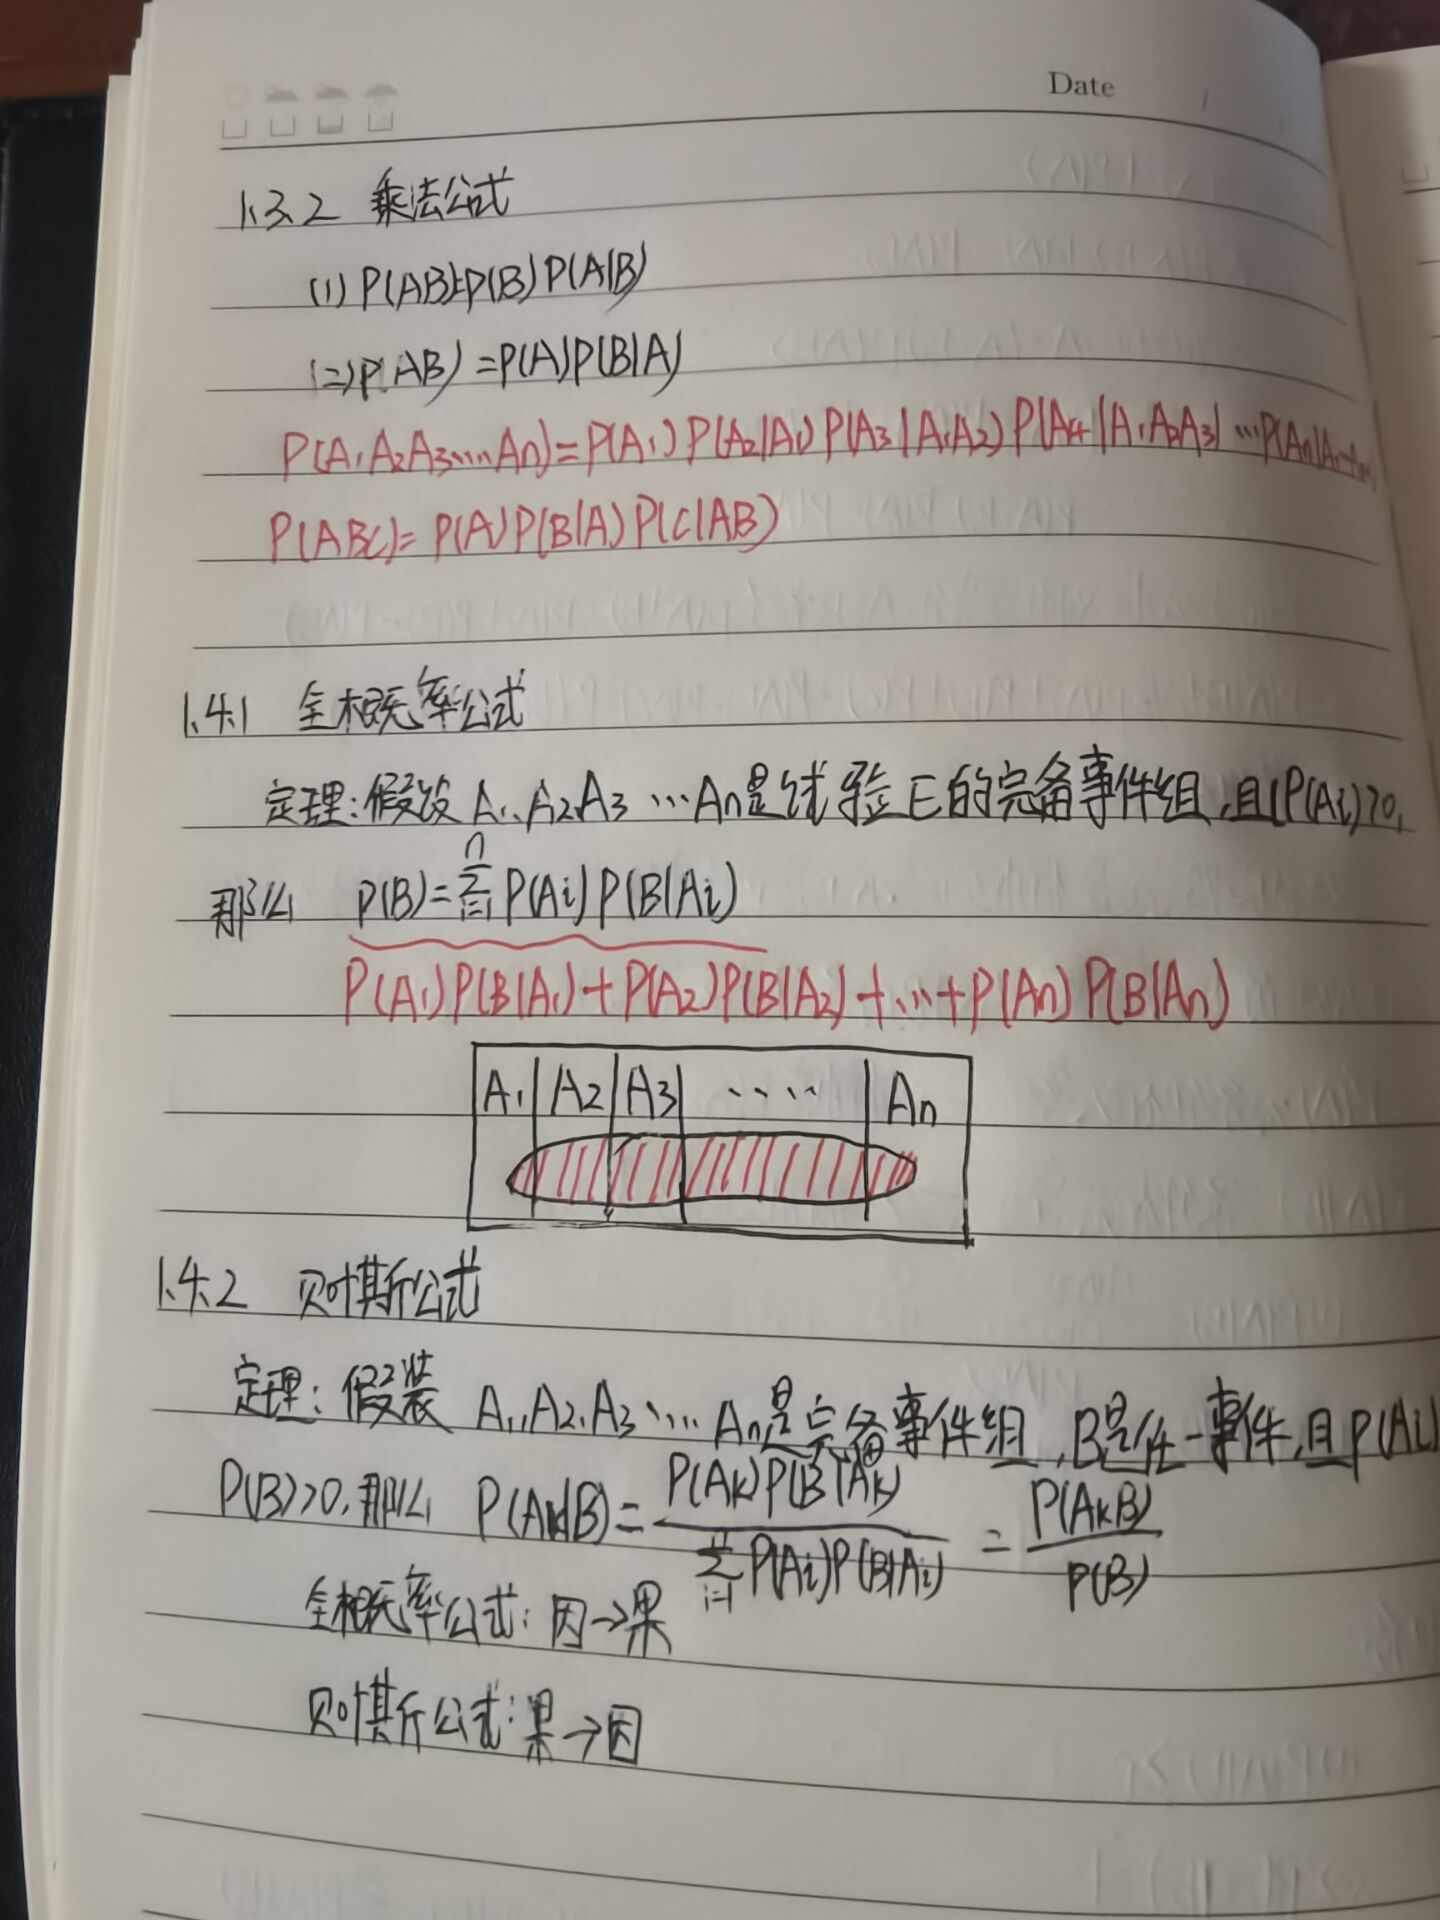 Date
1.3.2 乘法公式
(1) P(AB)=P(B)P(A|B)
(二) P(AB)=P(A)P(B|A)
P(A₁A₂A₃...An)=P(A₁)P(A₂|A₁)P(A₃|A₁A₂)P(A₄|A₁A₂A₃)...P(An|A₁...
P(ABC)=P(A)P(B|A)P(C|AB)
1.4.1 全概率公式
定理:假设A₁、A₂、A₃...An是试验E的完备事件组,且(P(Ai)>0,
那么 P(B)=∑ⁿᵢ₌₁P(Ai)P(B|Ai)
P(A₁)P(B|A₁)+P(A₂)P(B|A₂)+...+P(An)P(B|An)
A₁ A₂ A₃ .... An
1.4.2 贝叶斯公式
定理:假装 A₁、A₂、A₃.... An是完备事件组,B是任一事件,且P(Ai)
P(B)>0,那么 P(Ak|B)=P(Ak)P(B|Ak)/∑ⁿᵢ₌₁P(Ai)P(B|Ai)=P(AkB)/P(B)
全概率公式:因→果
贝叶斯公式:果→因